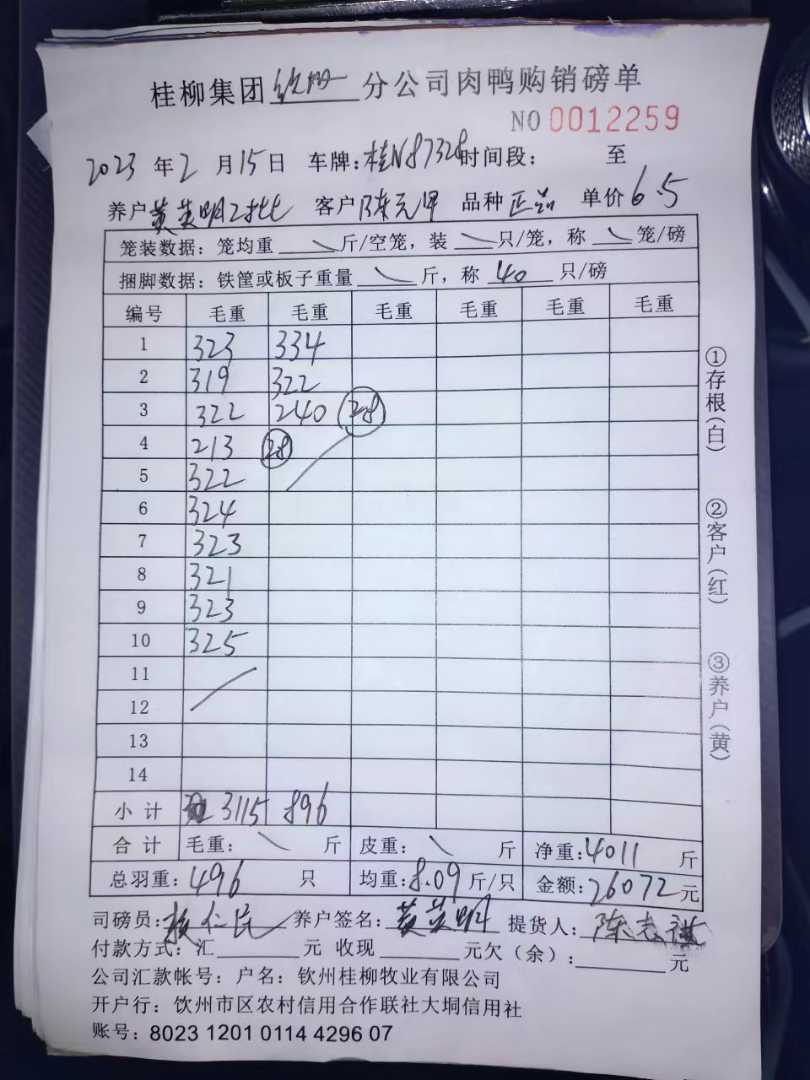 桂柳集团钦州分公司肉鸭购销磅单
NO 0012259
2023年2月15日 车牌:桂N87328时间段: 至
养户黄英明2批 客户陈元甲 品种正品 单价6.5
笼装数据:笼均重 \ 斤/空笼,装 \ 只/笼,称 \ 笼/磅
捆脚数据:铁筐或板子重量 \ 斤,称 40 只/磅
编号 毛重 毛重 毛重 毛重 毛重 毛重
1 323 334
2 319 322
3 322 240 (28)
4 213 (28)
5 322
6 324
7 323
8 321
9 323
10 325
11
12
13
14
小计 3115 896
合计 毛重: \ 斤 皮重: \ 斤 净重:4011 斤
总羽重:496 只 均重:8.09斤/只 金额:26072元
司磅员: 仁民 养户签名:黄英明 提货人:陈志
付款方式:汇 元 收现 元欠(余): 元
公司汇款帐号:户名:钦州桂柳牧业有限公司
开户行:饮州市区农村信用合作联社大垌信用社
账号:8023 1201 0114 4296 07
①存根(白)
②客户(红)
③养户(黄)